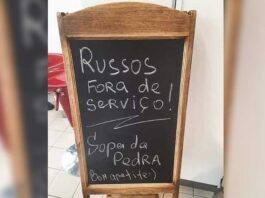 RUSSOS
FORA DE
SERVIÇO!
Sopa da
PEDRA
Bom apetite:)